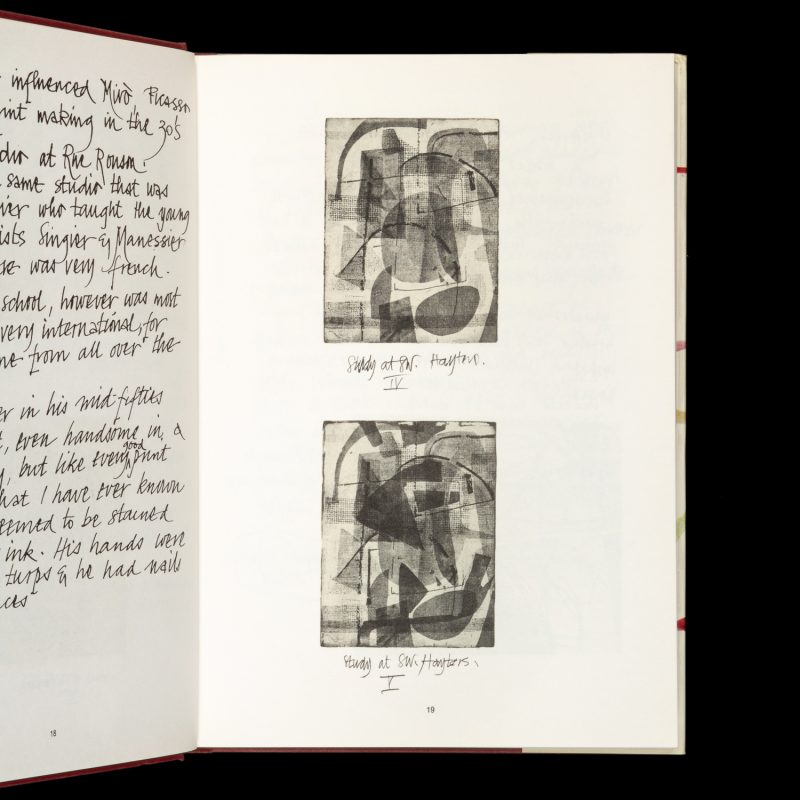 influenced Mirò, Picasso
int making in the 30's
dio at Rue Ronson.
same studio that was
ier who taught the young
ists Singier & Manessier
se was very french.
school, however was most
very international, for
me from all over the
er in his mid-fifties
t, even handsome in a
y, but like every good print
hat I have ever known
eemed to be stained
ink. His hands were
turps & he had nails
aces
18
Study at SW. Hayters.
IV
Study at SW. Hayters.
V
19